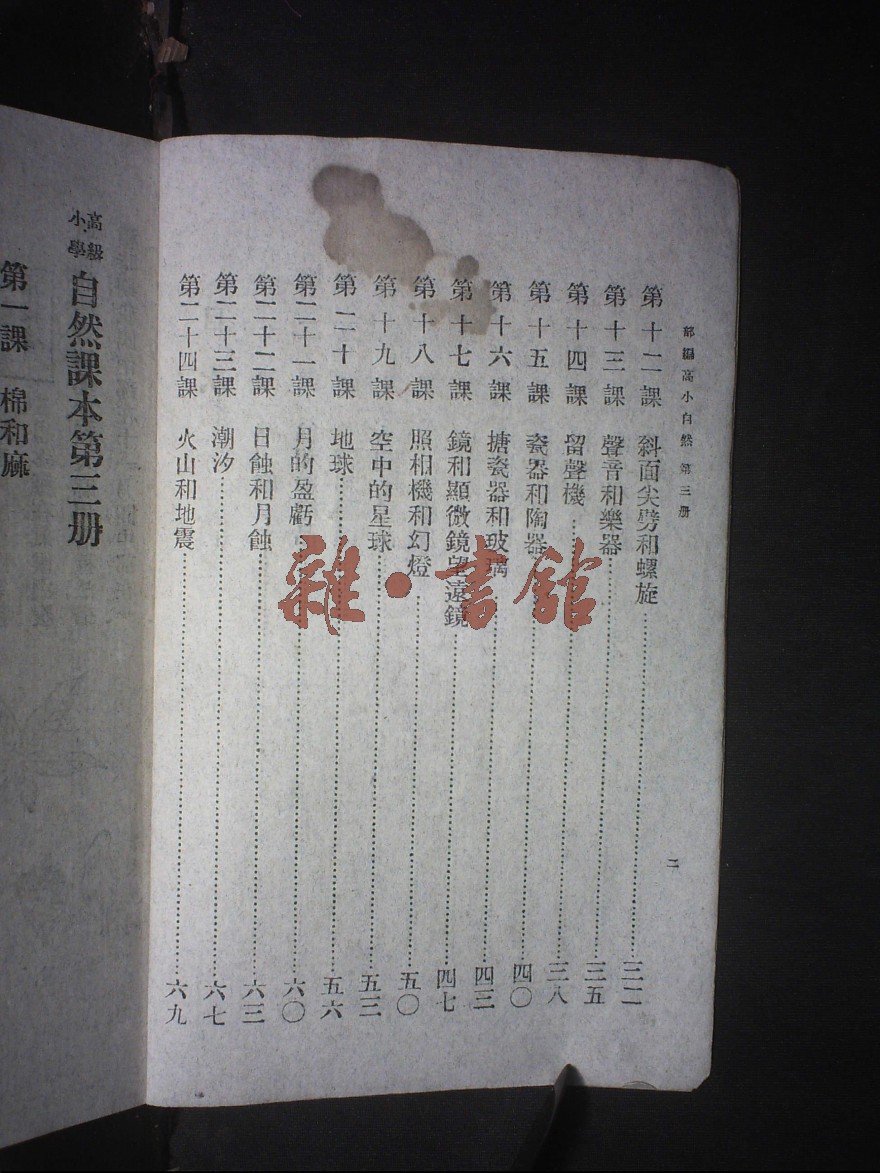 部編高小自然 第三册
二
第十二課 斜面尖劈和螺旋 三二
第十三課 聲音和樂器 三五
第十四課 留聲機 三八
第十五課 瓷器和陶器 四〇
第十六課 搪瓷器和玻璃 四三
第十七課 鏡和顯微鏡望遠鏡 四七
第十八課 照相機和幻燈 五〇
第十九課 空中的星球 五三
第二十課 地球 五六
第二十一課 月的盈虧 六〇
第二十二課 日蝕和月蝕 六三
第二十三課 潮汐 六七
第二十四課 火山和地震 六九
高級小學 自然課本第三册
第一課 棉和麻
雜·書館